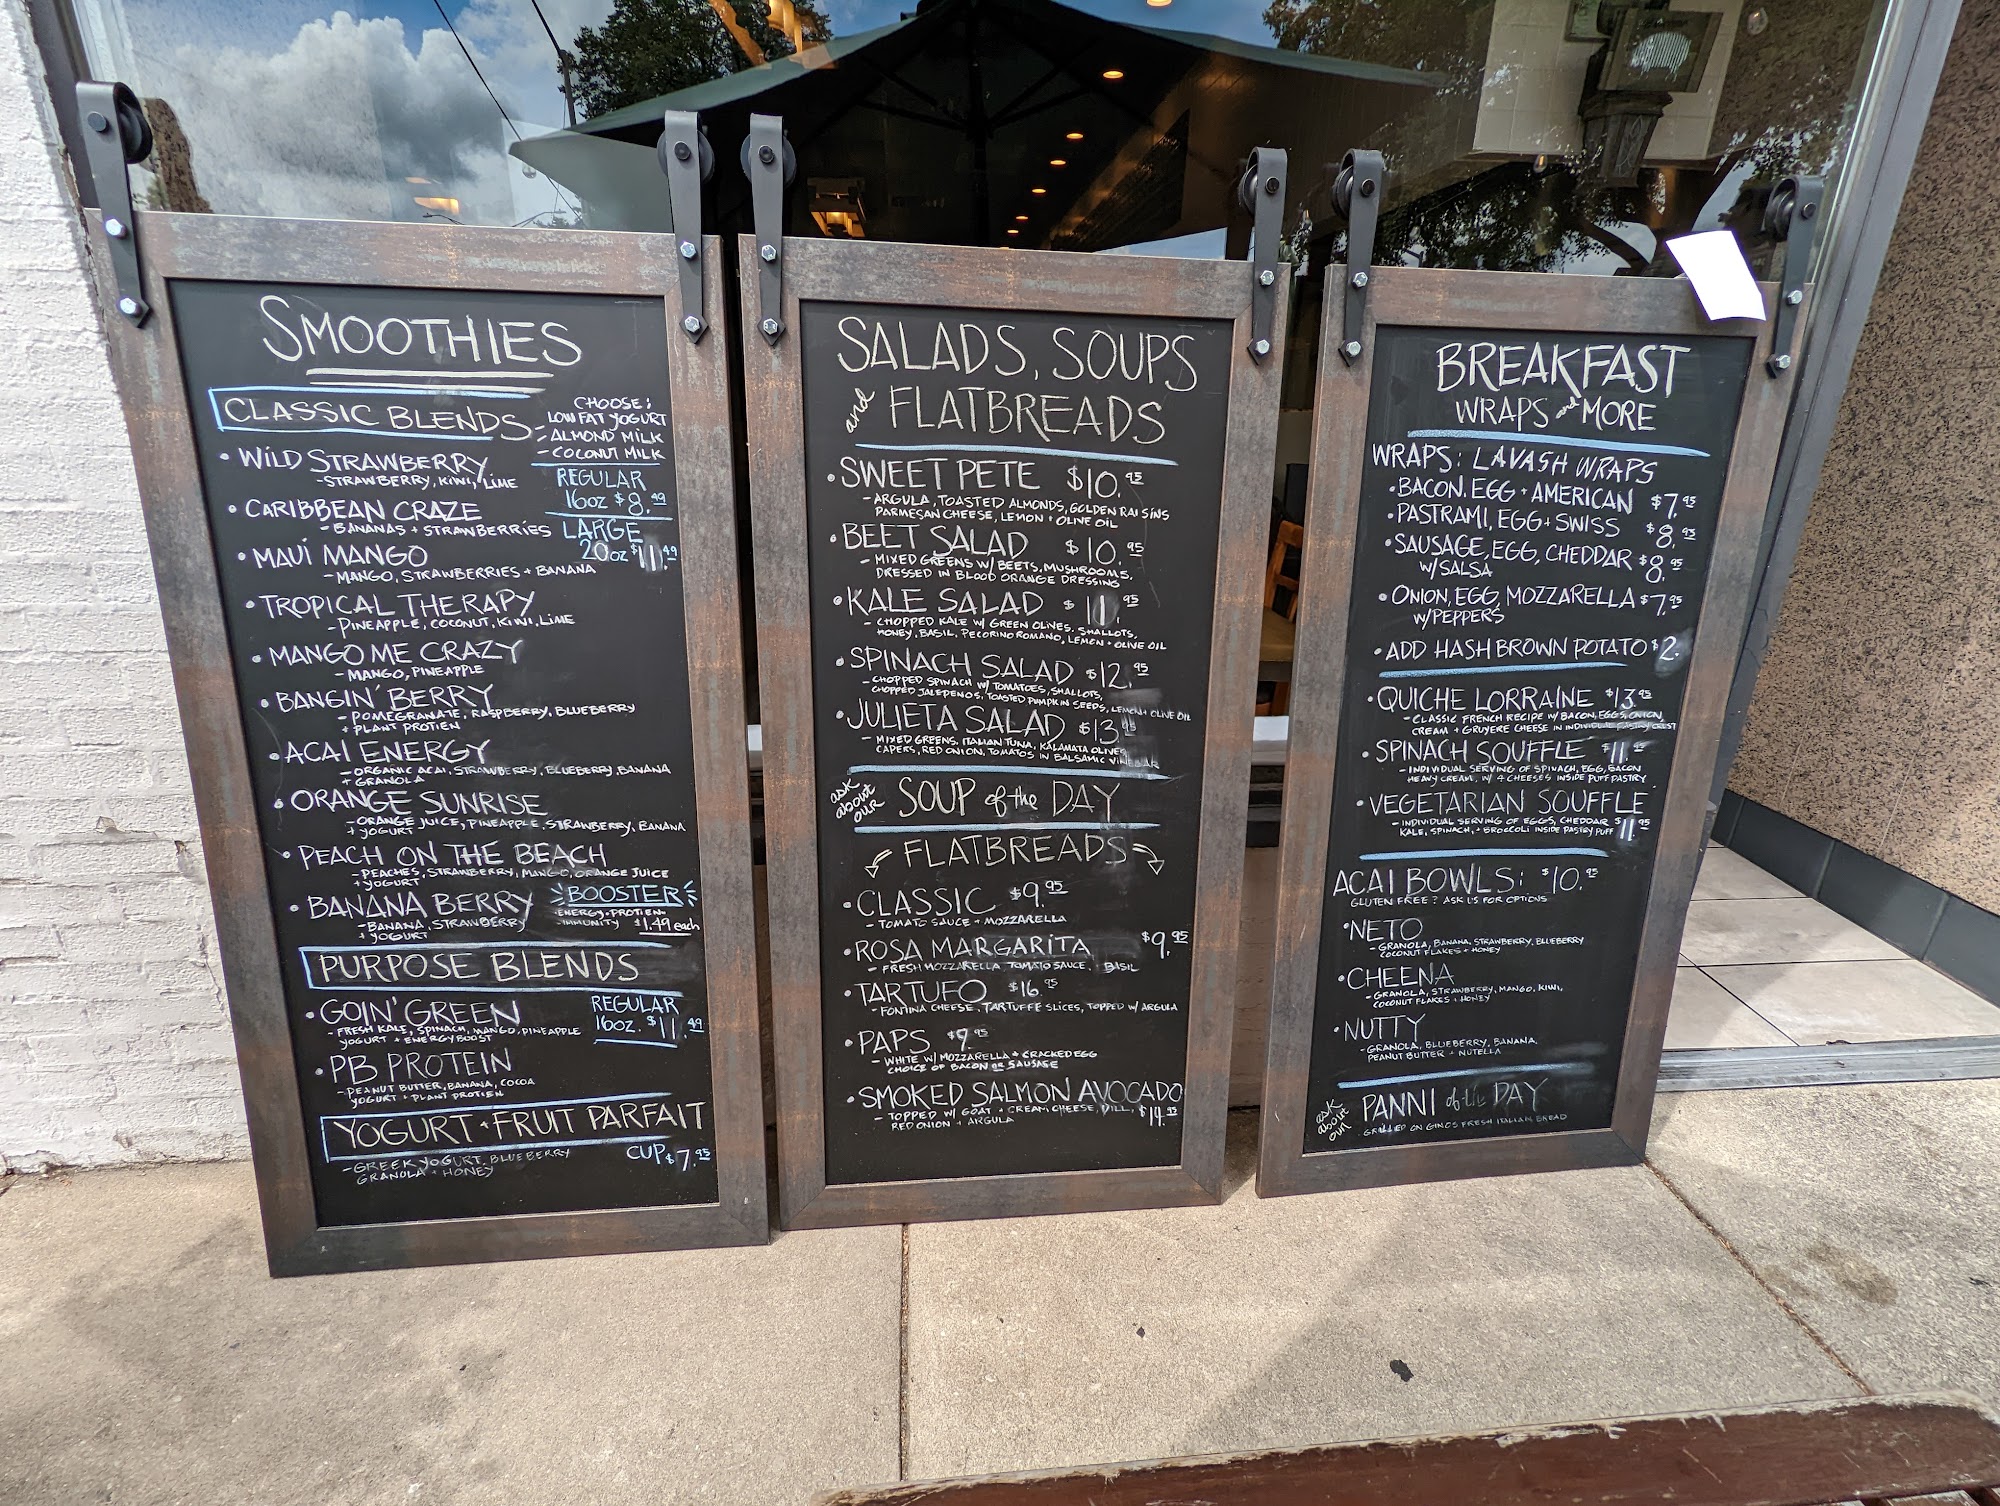 SMOOTHIES
CLASSIC BLENDS
CHOOSE:
- LOW FAT YOGURT
- ALMOND MILK
- COCONUT MILK
REGULAR
16oz $8.49
LARGE
20oz $11.49
• WILD STRAWBERRY
- STRAWBERRY, KIWI, LIME
• CARIBBEAN CRAZE
- BANANAS + STRAWBERRIES
• MAUI MANGO
- MANGO, STRAWBERRIES + BANANA
• TROPICAL THERAPY
- PINEAPPLE, COCONUT, KIWI, LIME
• MANGO ME CRAZY
- MANGO, PINEAPPLE
• BANGIN' BERRY
- POMEGRANATE, RASPBERRY, BLUEBERRY
+ PLANT PROTIEN
• ACAI ENERGY
- ORGANIC ACAI, STRAWBERRY, BLUEBERRY, BANANA
+ GRANOLA
• ORANGE SUNRISE
- ORANGE JUICE, PINEAPPLE, STRAWBERRY, BANANA
+ YOGURT
• PEACH ON THE BEACH
- PEACHES, STRAWBERRY, MANGO, ORANGE JUICE
+ YOGURT
• BANANA BERRY
- BANANA, STRAWBERRY
+ YOGURT
BOOSTER
- ENERGY - PROTIEN
- IMMUNITY $1.49 each
PURPOSE BLENDS
• GOIN' GREEN
- FRESH KALE, SPINACH, MANGO, PINEAPPLE
YOGURT + ENERGY BOOST
REGULAR
16oz. $11.49
• PB PROTEIN
- PEANUT BUTTER, BANANA, COCOA
YOGURT + PLANT PROTIEN
YOGURT + FRUIT PARFAIT
- GREEK YOGURT, BLUEBERRY
GRANOLA + HONEY
CUP $7.95
SALADS, SOUPS
and FLATBREADS
• SWEET PETE $10.95
- ARGULA, TOASTED ALMONDS, GOLDEN RAISINS
PARMESAN CHEESE, LEMON + OLIVE OIL
• BEET SALAD $10.95
- MIXED GREENS W/ BEETS, MUSHROOMS,
DRESSED IN BLOOD ORANGE DRESSING
• KALE SALAD $11.95
- CHOPPED KALE W/ GREEN OLIVES, SHALLOTS,
HONEY, BASIL, PECORINO ROMANO, LEMON + OLIVE OIL
• SPINACH SALAD $12.95
- CHOPPED SPINACH W/ TOMATOES, SHALLOTS,
CHOPPED JALEPENOS, TOASTED PUMPKIN SEEDS, LEMON + OLIVE OIL
• JULIETA SALAD $13.95
- MIXED GREENS, ITALIAN TUNA, KALAMATA OLIVES
CAPERS, RED ONION, TOMATOS IN BALSAMIC VINEGAR
ask about our SOUP of the DAY
FLATBREADS
• CLASSIC $9.95
- TOMATO SAUCE + MOZZARELLA
• ROSA MARGARITA $9.95
- FRESH MOZZARELLA, TOMATO SAUCE, BASIL
• TARTUFO $16.95
- FONTINA CHEESE, TARTUFFE SLICES, TOPPED W/ ARGULA
• PAPS $9.95
- WHITE W/ MOZZARELLA + CRACKED EGG
CHOICE OF BACON OR SAUSAGE
• SMOKED SALMON AVOCADO
- TOPPED W/ GOAT + CREAM CHEESE, DILL, $14.95
RED ONION + ARGULA
BREAKFAST
WRAPS and MORE
WRAPS: LAVASH WRAPS
• BACON, EGG + AMERICAN $7.95
• PASTRAMI, EGG + SWISS $8.95
• SAUSAGE, EGG, CHEDDAR $8.95
W/ SALSA
• ONION, EGG, MOZZARELLA $7.95
W/ PEPPERS
• ADD HASH BROWN POTATO $2.
• QUICHE LORRAINE $13.95
- CLASSIC FRENCH RECIPE W/ BACON, EGGS, ONION,
CREAM + GRUYERE CHEESE IN INDIVIDUAL PASTRY CRUST
• SPINACH SOUFFLE $11.95
- INDIVIDUAL SERVING OF SPINACH, EGG, BACON
HEAVY CREAM, W/ 4 CHEESES INSIDE PUFF PASTRY
• VEGETARIAN SOUFFLE
- INDIVIDUAL SERVING OF EGGS, CHEDDAR $11.95
KALE, SPINACH, + BROCCOLI INSIDE PASTRY PUFF
ACAI BOWLS: $10.95
GLUTEN FREE? ASK US FOR OPTIONS
• NETO
- GRANOLA, BANANA, STRAWBERRY, BLUEBERRY
COCONUT FLAKES + HONEY
• CHEENA
- GRANOLA, STRAWBERRY, MANGO, KIWI,
COCONUT FLAKES + HONEY
• NUTTY
- GRANOLA, BLUEBERRY, BANANA,
PEANUT BUTTER + NUTELLA
ask about our PANNI of the DAY
GRILLED ON GINOS FRESH ITALIAN BREAD